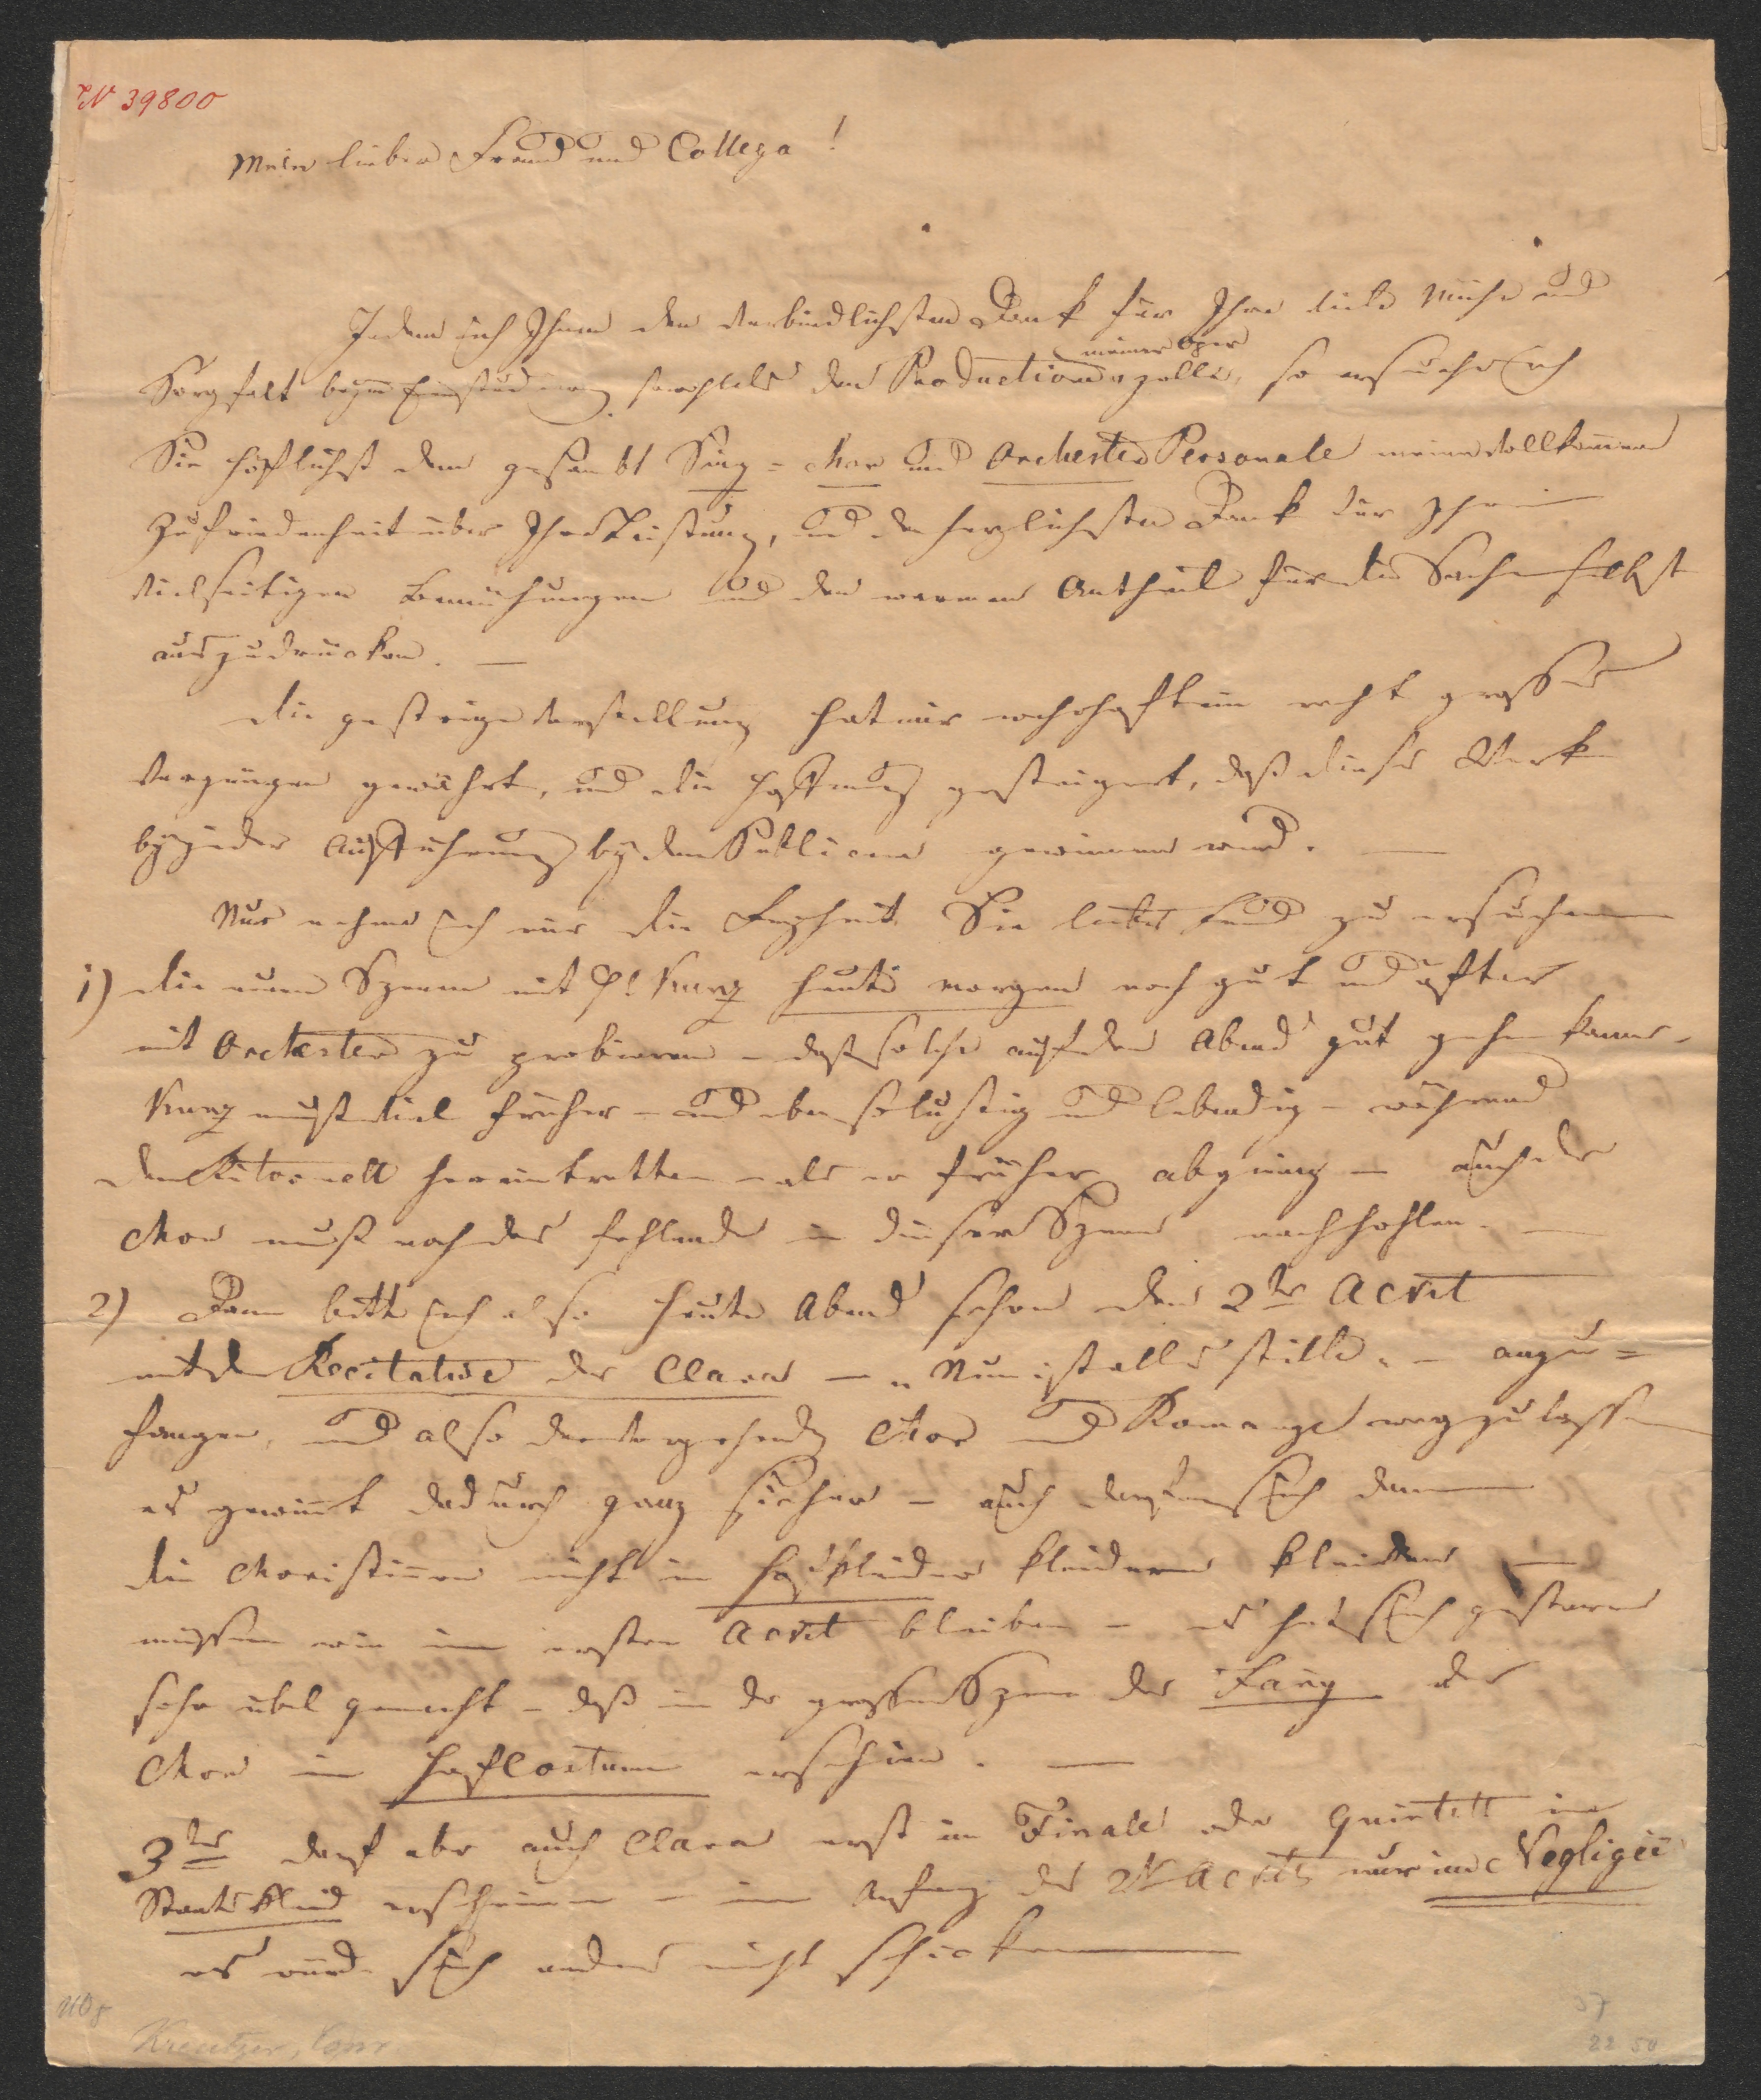 N 39800
Mein lieber Freund und Collega!
Indem ich Ihnen den verbindlichsten Dank für Ihre viele Mühe und
meiner Oper
Sorgfalt beym Einstudierung sowohl als den Production zolle, so ersuche ich
Sie höflichst dem gesambt Sing= Chor und Orchester Personale meine vollkommene
Zufriedenheit über Ihre Leistung, und den herzlichsten Dank für Ihre
vielseitigen Bemühungen und den warmen Antheil für die Sache selbst
auszudrücken. —
Die gestrige Vorstellung hat mir wahrhaft ein recht grosses
Vergnügen gewährt, und die Hoffnung gesteigert, daß dieses Werk
bey jeder Aufführung bey dem Publicum gewinnen wird. —
Nur nehme ich mir die Freyheit Sie lieber Freund zu ersuchen
1) die neue Szene mit H: heute morgen noch gut und öfter
mit Orchester zu probieren – daß solche auf den Abend gut gehen kann –
muß viel früher – und eben so lustig und lebendig – während
dem Ritornell hereintretten – als er früher abging – auch der
Chor muß noch das fehlende in dieser Szene nachhohlen. —
2) Dann bitte ich also heute Abend schon den 2ter Act
mit dem Recitative der Clara – „Nun ist alles stille" – anzu=
fangen, und also den vorgehenden Chor und Romanze wegzulassen
es gewinnt dadurch ganz sicher – auch dürfen sich dann
die Choristinnen nicht in Hofkleider kleidern kleiden —
müssen wie im ersten Act bleiben – es hat sich gestern
sehr übel gemacht – daß in der grossen Szene der der
Chor in Hofcostum erschien. —
3tens darf aber auch Clara erst im Finale oder Quintett im
Staatskleid erscheinen – im Anfang des 2t Acts nur im Negligée
es würde sich anders nicht schicken —
Kreutzer, Conr.
37
22 50